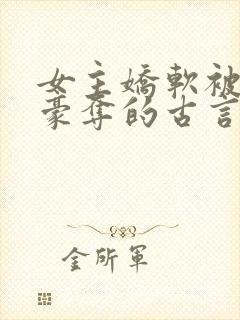 女主嬌軟被
豪奪的古言
金所軍